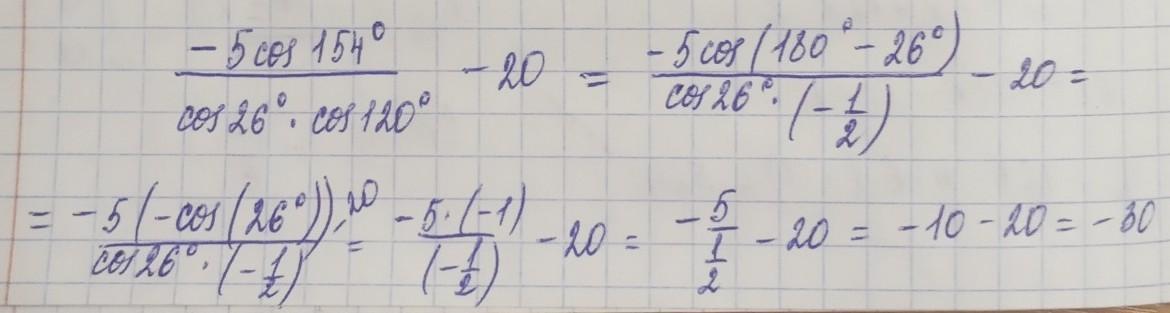 (-5cos154°)/(cos26°·cos120°) - 20 = (-5cos(180°-26°))/(cos26°·(-1/2)) - 20 =
= (-5(-cos(26°)))/(cos26°·(-1/2)) - 20 = (-5·(-1))/((-1/2)) - 20 = -5/(1/2) - 20 = -10 - 20 = -30